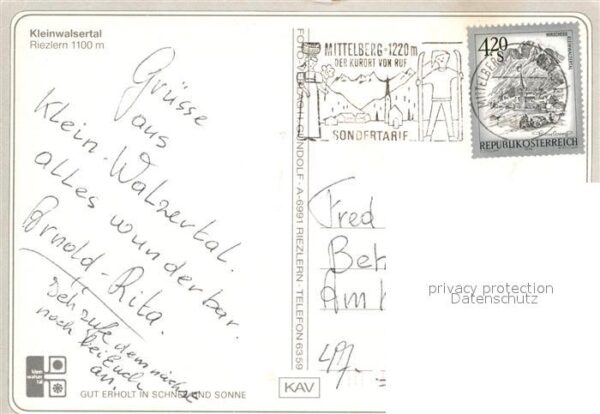 Kleinwalsertal
Riezlern 1100 m
Grüsse
aus
Klein-Walzertal.
alles wunderbar.
Arnold-Rita.
Ich rufe demnächst
noch bei Euch
an.
GUT ERHOLT IN SCHNEE UND SONNE
klein
walser
tal
KAV
GUNDOLF - A-6991 RIEZLERN - TELEFON 6359
MITTELBERG-1220m
DER KURORT VON RUF
SONDERTARIF
4.20
S
MITTELBERG
REPUBLIK ÖSTERREICH
Fred
Am
497.
privacy protection
Datenschutz